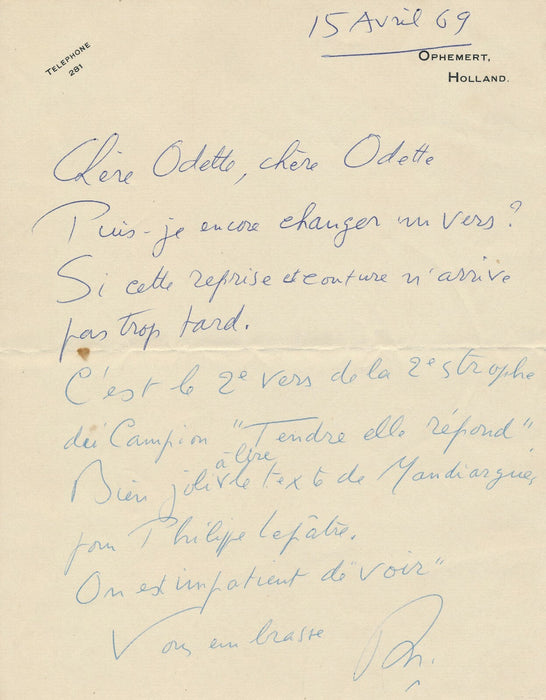 15 Avril 69
TELEPHONE
281
OPHEMERT,
HOLLAND.
Chère Odette, chère Odette
Puis-je encore changer un vers?
Si cette reprise et couture n'arrive
pas trop tard.
C'est le 2e vers de la 2e strophe
du Campion "Tendre elle répond"
à lire
Bien joli le texte de Mandiargues
pour Philippe Lepâtre.
On est impatient de "voir"
Vous embrasse